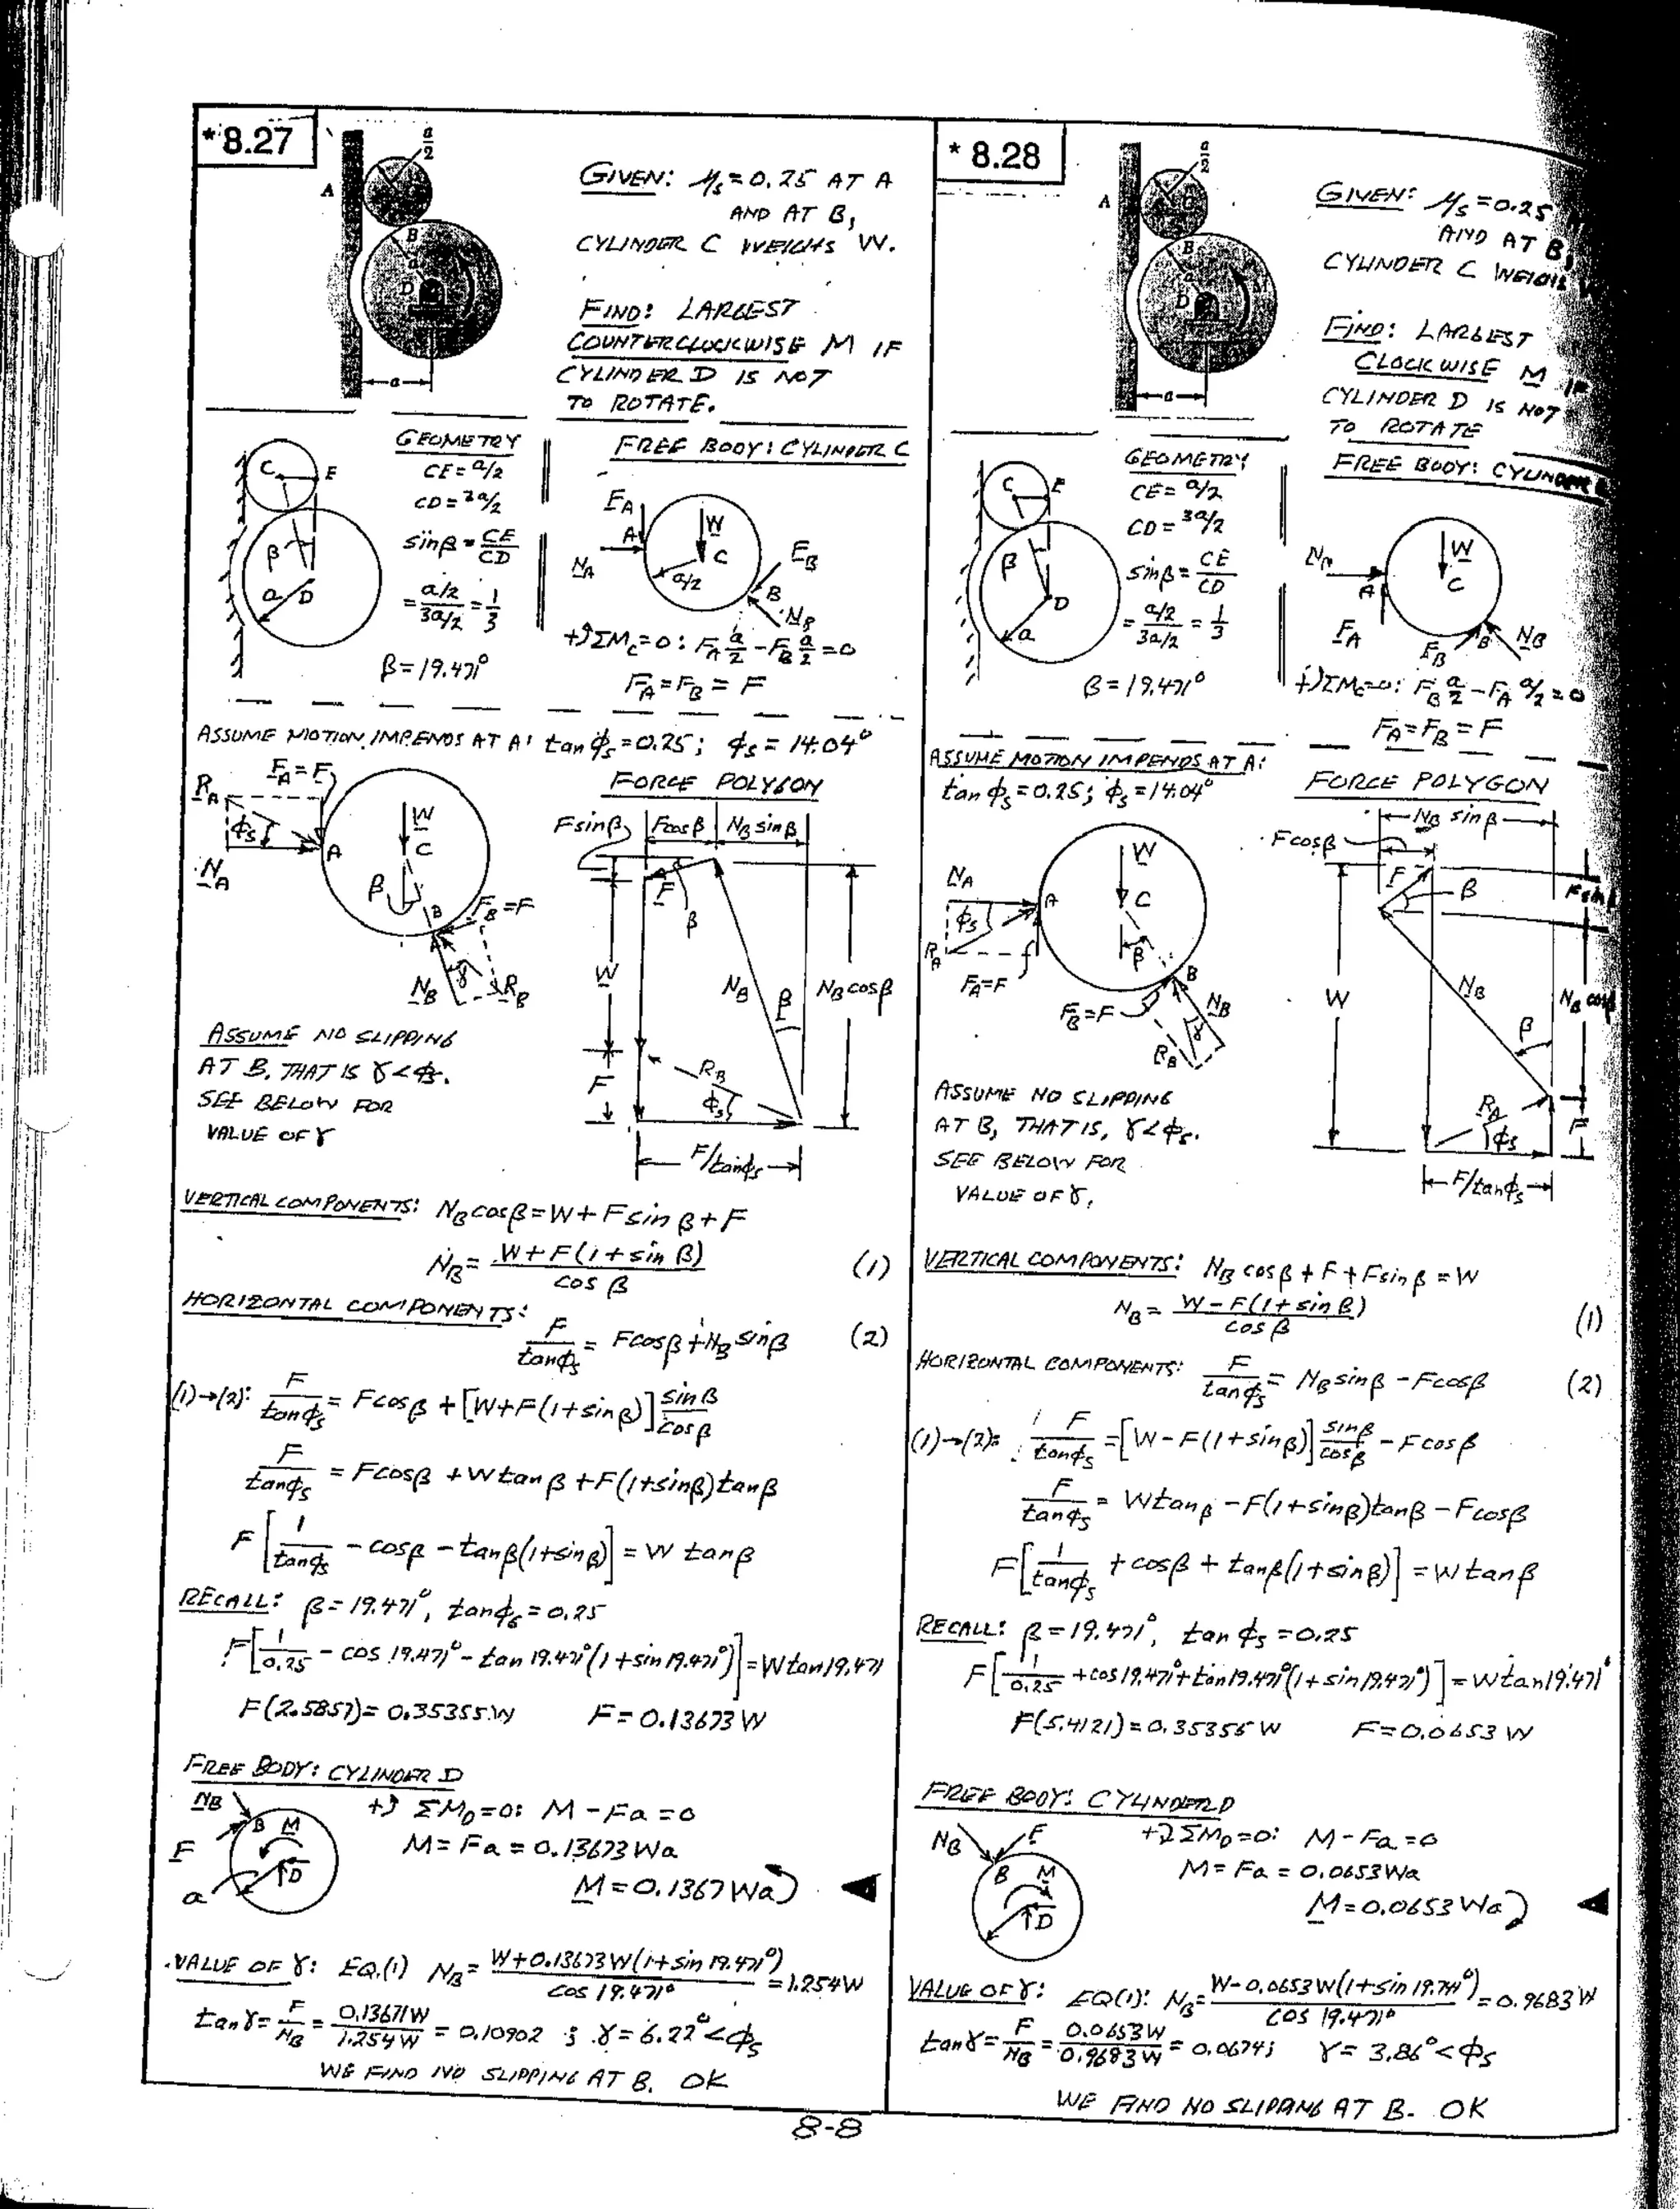 *8.27
a/2
A
B
a
D
a
GIVEN: μs=0.25 AT A
AND AT B,
CYLINDER C WEIGHS W.
FIND: LARGEST
COUNTERCLOCKWISE M IF
CYLINDER D IS NOT
TO ROTATE.
C
E
β
a
D
GEOMETRY
CE=a/2
CD=3a/2
sinβ=CE/CD
=(a/2)/(3a/2)=1/3
β=19.471°
FREE BODY: CYLINDER C
FA
A
W
C
NA
a/2
FB
B
NB
+↺ΣMC=0: FA a/2 -FB a/2=0
FA=FB=F
ASSUME MOTION IMPENDS AT A: tan φs=0.25; φs=14.04°
RA
FA=F
φs
NA
A
W
C
β
B
FB=F
NB
γ
RB
FORCE POLYGON
Fsinβ
Fcosβ
NB sinβ
F
β
W
NB
β
NB cosβ
F
RB
φs
F/tanφs
ASSUME NO SLIPPING
AT B, THAT IS γ<φs.
SEE BELOW FOR
VALUE OF γ
VERTICAL COMPONENTS: NB cosβ=W+F sin β+F
NB= W+F(1+sin β) / cos β (1)
HORIZONTAL COMPONENTS:
F/tanφs= Fcosβ+NB sinβ (2)
(1)→(2): F/tanφs= Fcosβ +[W+F(1+sinβ)] sinβ/cosβ
F/tanφs = Fcosβ +W tan β +F(1+sinβ)tanβ
F[1/tanφs -cosβ -tanβ(1+sinβ)] = W tanβ
RECALL: β=19.471°, tanφs=0.25
F[1/0.25 - cos 19.471° - tan 19.471°(1+sin19.471°)]=Wtan19.471
F(2.5857)= 0.35355W F=0.13673 W
FREE BODY: CYLINDER D
NB
B
M
F
D
a
+↺ ΣMD=0: M-Fa=0
M= Fa = 0.13673 Wa
M=0.1367 Wa↺
VALUE OF γ: EQ.(1) NB= W+0.13673W(1+sin 19.471°) / cos 19.471° =1.254W
tanγ= F/NB = 0.13671W/1.254W = 0.10902 ; γ=6.22°<φs
WE FIND NO SLIPPING AT B. OK
*8.28
a/2
A
C
B
a
D
M
a
GIVEN: μs=0.25
AND AT B,
CYLINDER C WEIGHS
FIND: LARGEST
CLOCKWISE M IF
CYLINDER D IS NOT
TO ROTATE
C
E
β
D
a
GEOMETRY
CE=a/2
CD=3a/2
sinβ=CE/CD
=(a/2)/(3a/2)=1/3
β=19.471°
FREE BODY: CYLINDER
NA
A
W
C
FA
FB
B
NB
+↺ΣMC=0: FB a/2 -FA a/2=0
FA=FB=F
ASSUME MOTION IMPENDS AT A:
tan φs=0.25; φs=14.04°
NA
φs
RA
FA=F
A
W
C
β
B
FB=F
NB
γ
RB
FORCE POLYGON
NB sin β
Fcosβ
F
β
F sin
W
NB
β
NB cos
RA
φs
F
F/tanφs
ASSUME NO SLIPPING
AT B, THAT IS, γ<φs.
SEE BELOW FOR
VALUE OF γ.
VERTICAL COMPONENTS: NB cosβ+F+Fsinβ=W
NB= W-F(1+sin β) / cos β (1)
HORIZONTAL COMPONENTS: F/tanφs= NB sinβ -Fcosβ (2)
(1)→(2): F/tanφs=[W-F(1+sinβ)] sinβ/cosβ -Fcosβ
F/tanφs = Wtanβ -F(1+sinβ)tanβ-Fcosβ
F[1/tanφs +cosβ+ tanβ(1+sinβ)] =Wtanβ
RECALL: β=19.471°, tan φs =0.25
F[1/0.25 +cos19.471°+tan19.471°(1+sin19.471°)]=Wtan19.471°
F(5.4121)=0.35355 W F=0.0653 W
FREE BODY: CYLINDER D
NB
F
B
M
D
+↻ΣMD=0: M-Fa=0
M= Fa = 0.0653Wa
M=0.0653 Wa↻
VALUE OF γ: EQ(1): NB= W-0.0653W(1+sin 19.741°) / cos 19.471° =0.9683W
tanγ= F/NB = 0.0653W/0.9683W = 0.0674; γ= 3.86°<φs
WE FIND NO SLIPPING AT B. OK
8-8